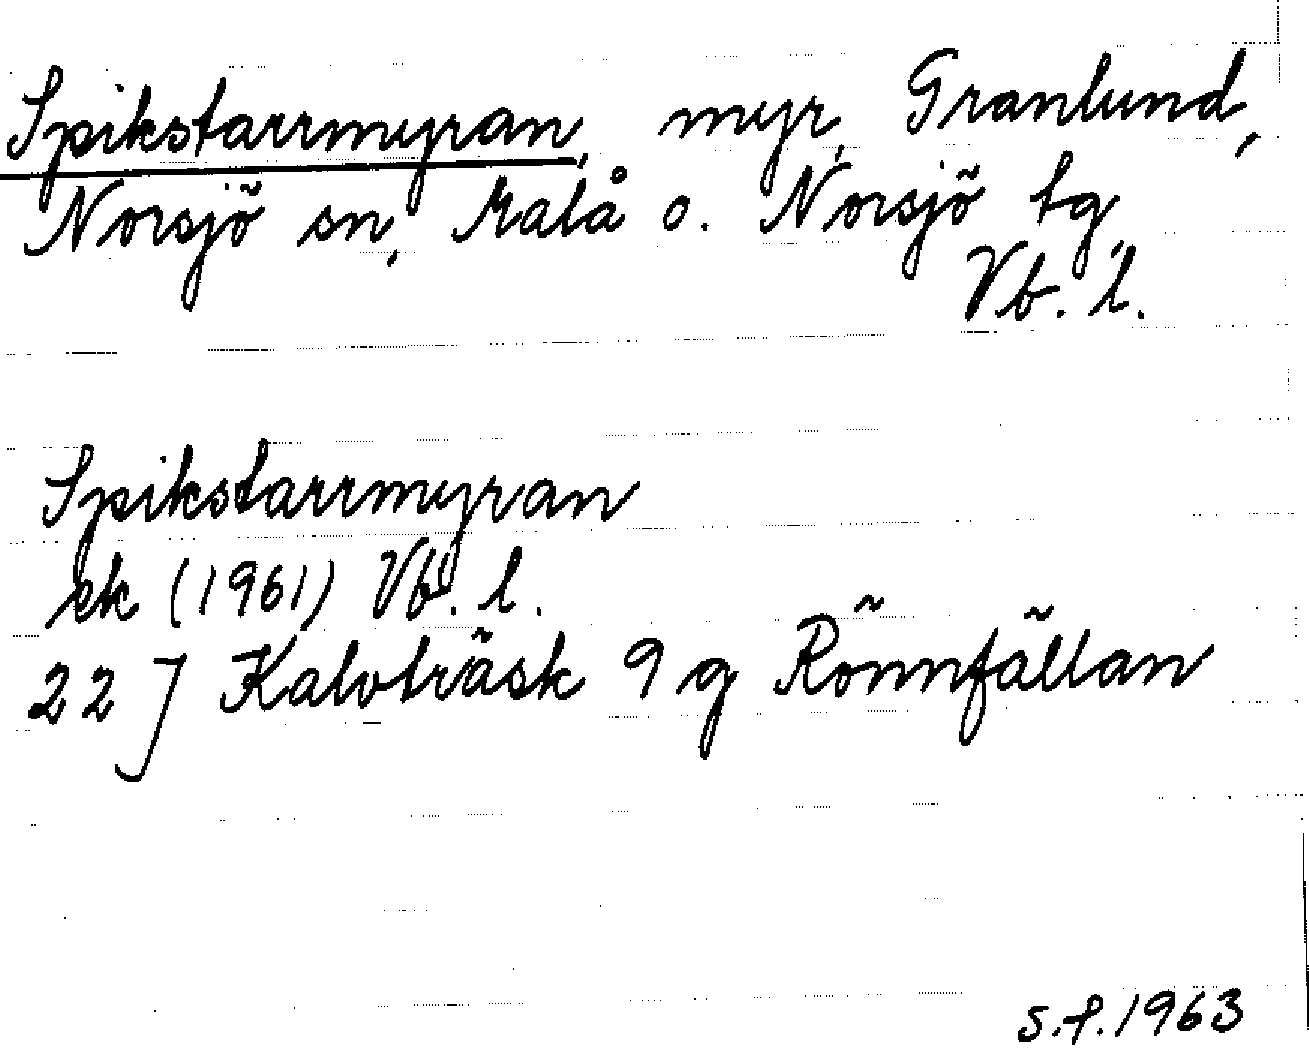 Spikstarrmyran, myr, Granlund,
Norsjö sn, Malå o. Norsjö tg,
Vb. l.
Spikstarrmyran
ek (1961) Vb. l.
22 J Kalvträsk 9 g Rönnfällan
s.f. 1963